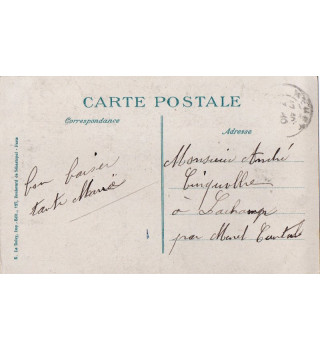 CARTE POSTALE
Correspondance
Adresse
bon baiser
tante Marie
Monsieur André
à Lachamp
par Murat Cantal
E. Le Deley, Imp.-Édit., 127, Boulevard de Sébastopol - Paris